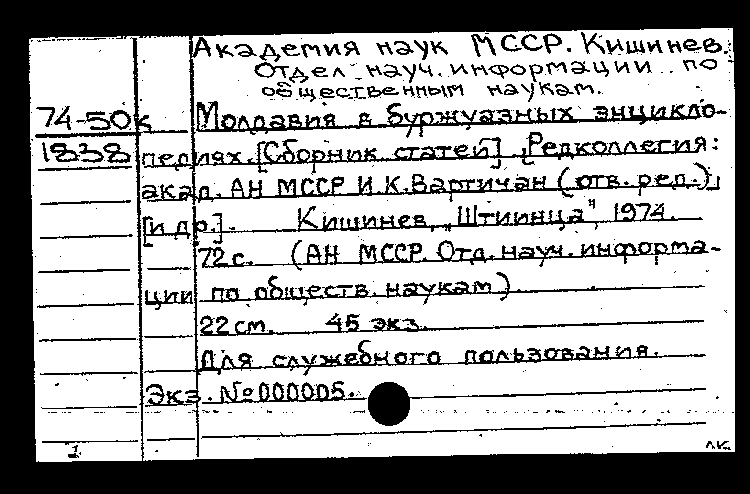 Академия наук МССР. Кишинев.
Отдел науч. информации по
общественным наукам.
74-50к Молдавия в буржуазных энцикло-
1838 педиях. [Сборник статей]. [Редколлегия:
акад. АН МССР И.К. Вартичан (отв. ред.),
[и др.]. Кишинев, "Штиинца", 1974.
72 с. (АН МССР. Отд. науч. информа-
ции по обществ. наукам).
22 см. 45 экз.
Для служебного пользования.
Экз. № 000005.
1 л.к.